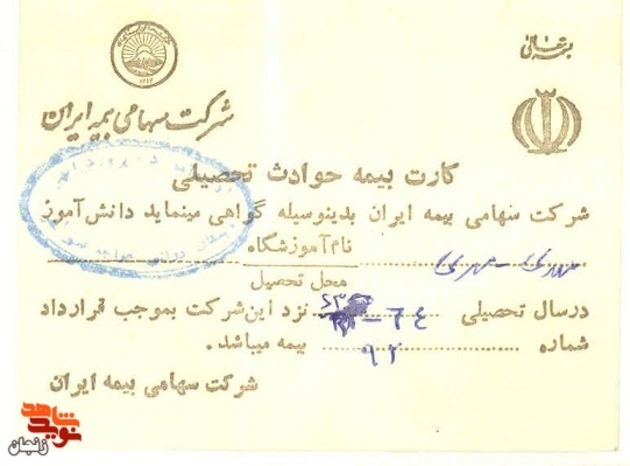 بسمه تعالی
شرکت سهامی بیمه ایران
کارت بیمه حوادث تحصیلی
شرکت سهامی بیمه ایران بدینوسیله گواهی مینماید دانش آموز
نام آموزشگاه
محل تحصیل
درسال تحصیلی ۶۴ - ۶۳ نزد این شرکت بموجب قرارداد
شماره ۹۲ بیمه میباشد .
شرکت سهامی بیمه ایران
نوید شاهد
زنجان